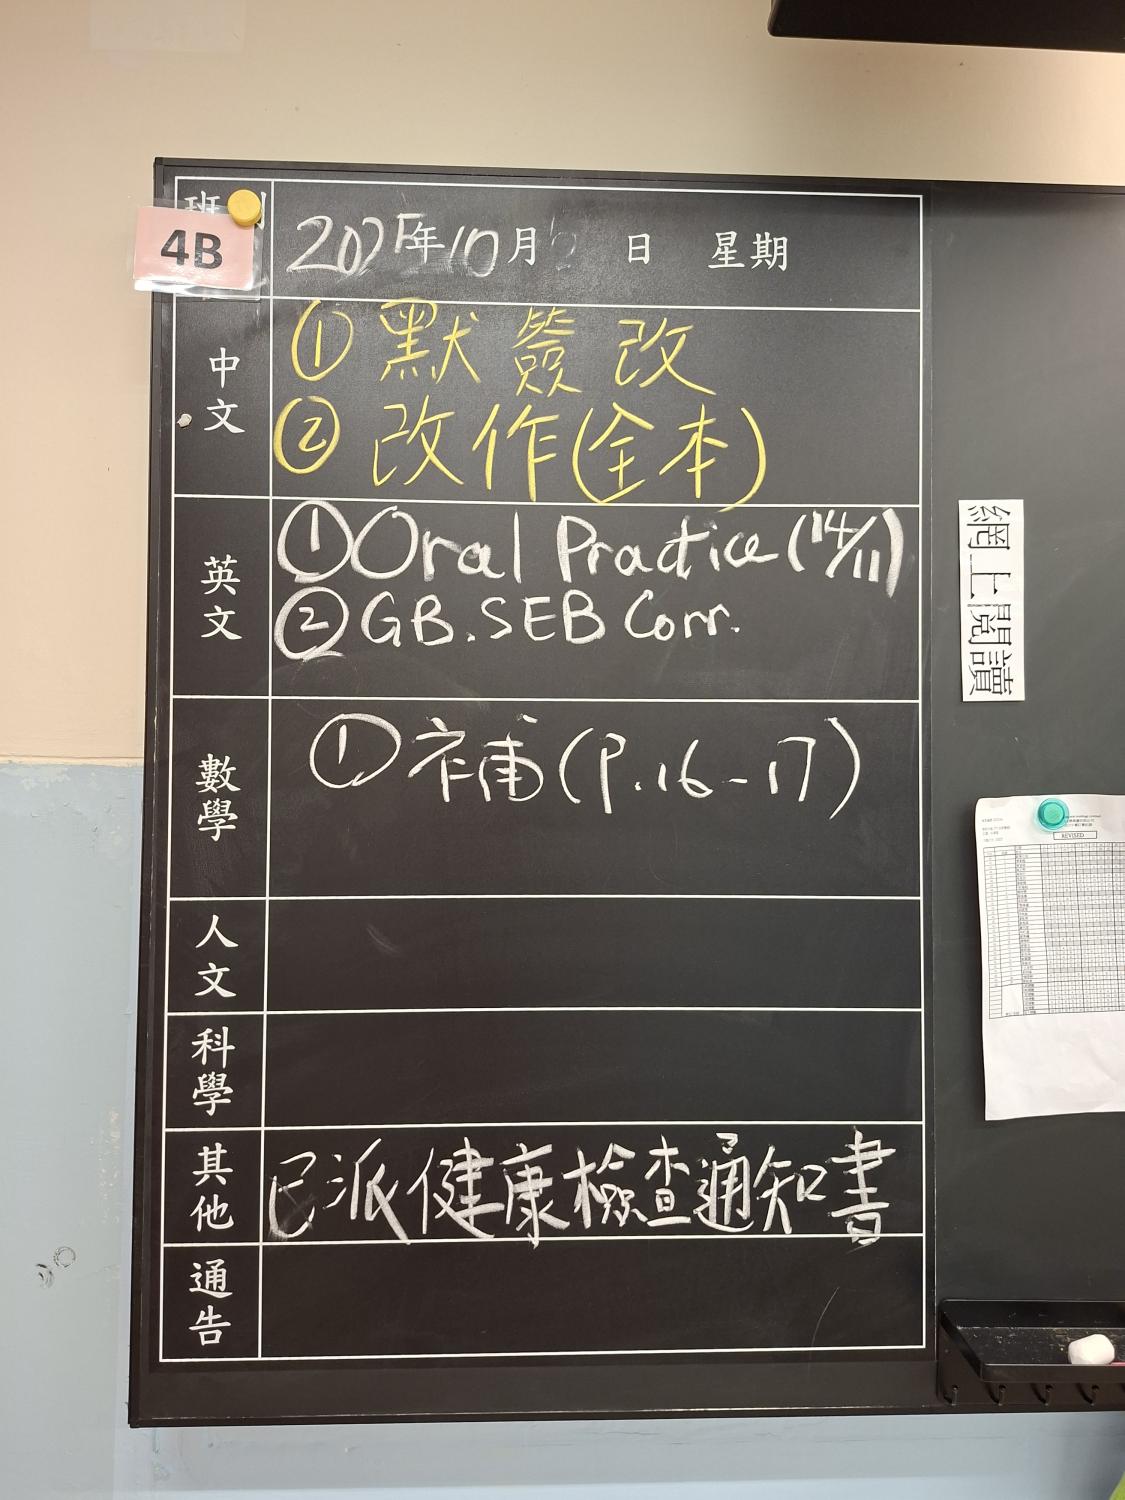 4B
2025年10月 日 星期
中文
① 默簽改
② 改作(全本)
英文
① Oral Practice (14/11)
② GB. SEB Corr.
數學
① 補(P.16-17)
人文
科學
其他
已派健康檢查通知書
通告
網上閱讀
REVISED